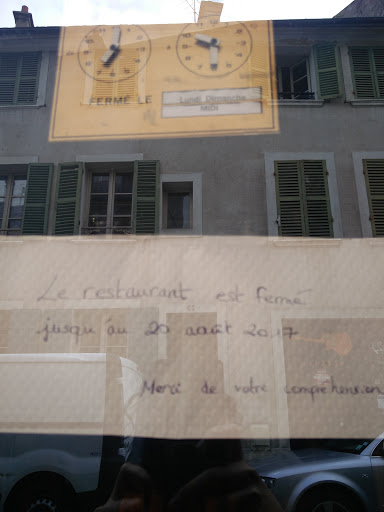 FERMÉ LE
Lundi Dimanche
MIDI
Le restaurant est fermé
jusqu'au 20 août 2017
Merci de votre compréhension